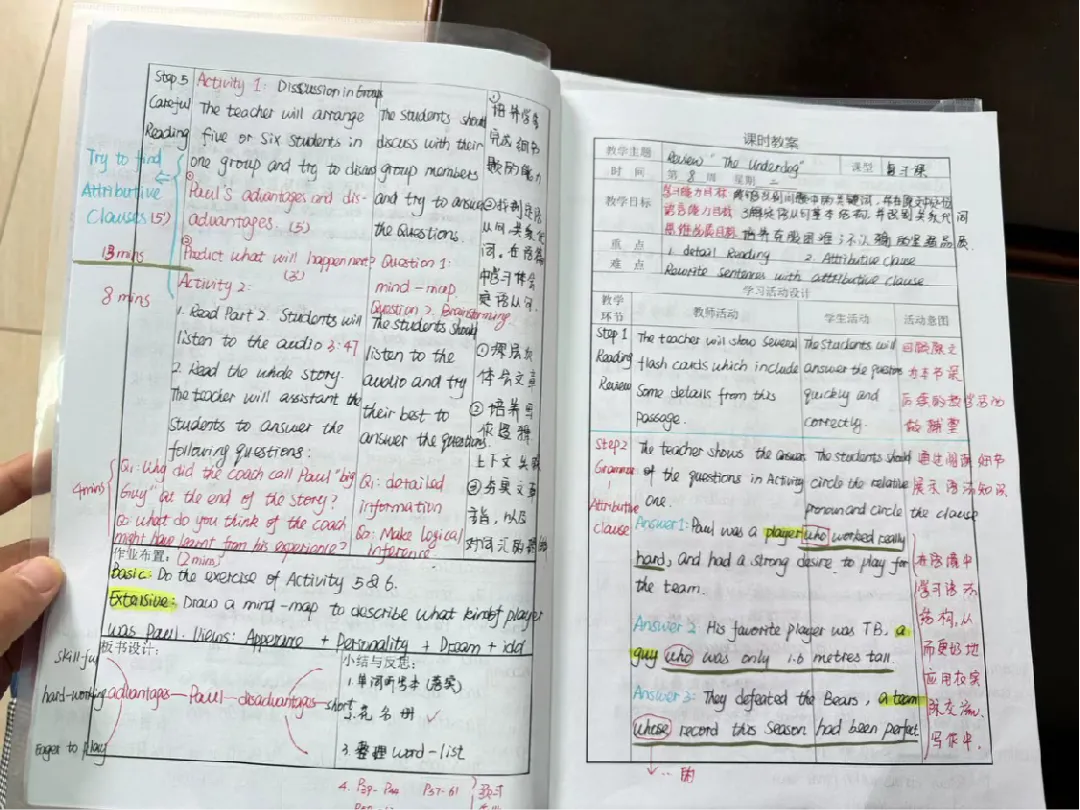 Step 5
Careful
Reading
Try to find
Attributive
Clauses (5')
13mins
8 mins
4mins
Activity 1: Discussion in Group
The teacher will arrange
five or six students in
one group and try to discuss
① Paul's advantages and dis-
advantages. (5)
② Product what will happen next?
(3)
Activity 2:
1. Read Part 2. Students will
listen to the audio 3:47
2. Read the whole story.
The teacher will assistant the
students to answer the
following questions:
Q1: Why did the coach call Paul "big
Guy" at the end of the story?
Q2: What do you think of the coach
might have learnt from his experience?
(2mins)
The students should
discuss with their
group members
and try to answer
the Questions
Question 1:
mind-map.
Question 2. Brainstorming
The students should
listen to the
audio and try
their best to
answer the questions.
Q1: detailed
information
Q2: Make logical
inference.
①
培养学生
完成细节
题的能力
②找到定语
从句关系代
词。在语篇
中学习体会
定语从句。
②培养
上下文
③夯实文章
作业布置:
basic: Do the exercise of Activity 5 & 6.
Extensive: Draw a mind-map to describe what kind of player
was Paul. Views: Apperane + Personality + Dream + idol
板书设计:
skill-ful
hard-working
Eager to play
advantages — Paul — disadvantages — short
小结与反思:
1.单词听写本(落实)
2.花名册 ✓
3.整理word-list
4. P59- P57-61 预习
课时教案
教学主题 Review "The Underdog" 课型 复习课
时间 第 8 周 星期 二
教学目标
学习能力目标
语言能力目标 3解定语从句基本结构,并识别关系代词
思维发展目标 培养克服困难,不认输的坚毅品质.
重点 1. detail Reading 2. Attributive clause
难点 Rewrite sentences with attributive clause
学习活动设计
教学
环节
教师活动 学生活动 活动意图
Step 1
Reading
Review
The teacher will show several
flash cards which include
some details from this
passage.
The students will
answer the questions
quickly and
correctly.
回顾原文
为本节课
后续的教学活动
做铺垫
Step 2
Grammar
Attributive
Clause
The teacher shows the answer
of the questions in Activity
one.
The students should
circle the relative
pronoun and circle the clause
通过阅读细节
展示语法知识
Answer 1: Paul was a player who worked really
hard, and had a strong desire to play for
the team.
Answer 2 His favorite player was T.B. a
guy who was only 1.6 metres tall.
Answer 3: They defeated the Bears, a team
whose record this season had been perfect.
在语境中
学习语法
结构,从
而更好地
应用在实
际交流、
写作中。
↓... 的